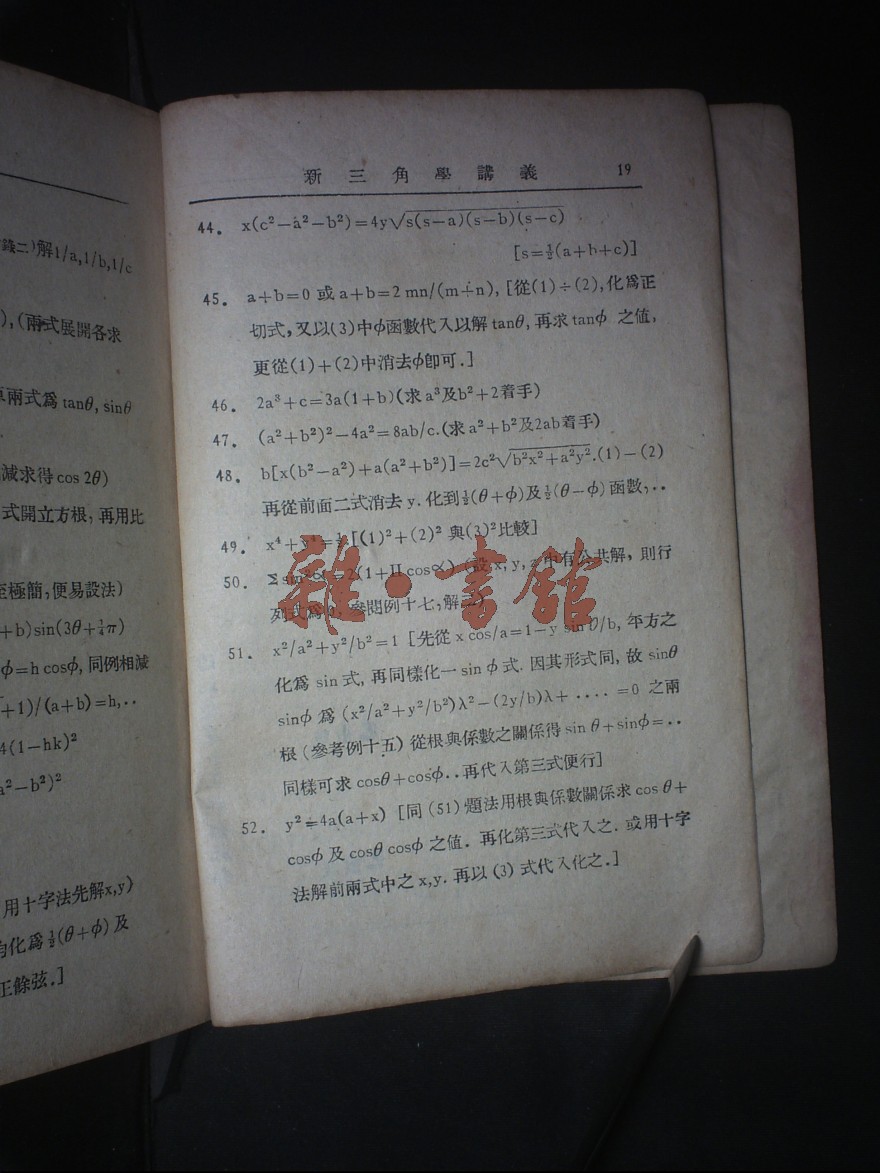 錄二)解1/a,1/b,1/c
),(兩式展開各求
兩式爲 tanθ, sinθ
減求得 cos 2θ)
式開立方根, 再用比
至極簡, 便易設法)
+b)sin(3θ+¼π)
φ=h cosφ, 同例相減
+1)/(a+b)=h,..
4(1-hk)²
a²-b²)²
用十字法先解x,y)
化爲½(θ+φ)及
正餘弦.]
新三角學講義 19
44. x(c²-a²-b²)=4y√s(s-a)(s-b)(s-c)
[s=½(a+b+c)]
45. a+b=0 或 a+b=2 mn/(m+n), [從(1)÷(2), 化爲正
切式, 又以(3)中φ函數代入以解 tanθ, 再求 tanφ 之值,
更從(1)+(2)中消去φ卽可.]
46. 2a³+c=3a(1+b)(求 a³及b²+2着手)
47. (a²+b²)²-4a²=8ab/c.(求 a²+b²及2ab着手)
48. b[x(b²-a²)+a(a²+b²)]=2c²√b²x²+a²y².(1)-(2)
再從前面二式消去 y. 化到½(θ+φ)及½(θ-φ)函數,..
49. x⁴+y⁴= [(1)²+(2)² 與(3)²比較]
50. 2(1+Π cos∝) x, y, z 中有公共解, 則行
列式爲 參閱例十七, 解
51. x²/a²+y²/b²=1 [先從 x cos/a=1-y sin θ/b, 平方之
化爲 sin 式, 再同樣化一 sin φ 式. 因其形式同, 故 sinθ
sinφ 爲 (x²/a²+y²/b²)λ²-(2y/b)λ+ .... =0 之兩
根 (參考例十五) 從根與係數之關係得 sin θ+sinφ=..
同樣可求 cosθ+cosφ..再代入第三式便行]
52. y²=4a(a+x) [同 (51) 題法用根與係數關係求 cos θ+
cosφ 及 cosθ cosφ 之值. 再化第三式代入之. 或用十字
法解前兩式中之 x,y. 再以 (3) 式代入化之.]
雜·書館